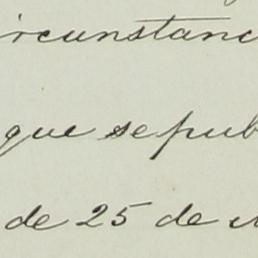 ircunstanc
que se pub
de 25 de